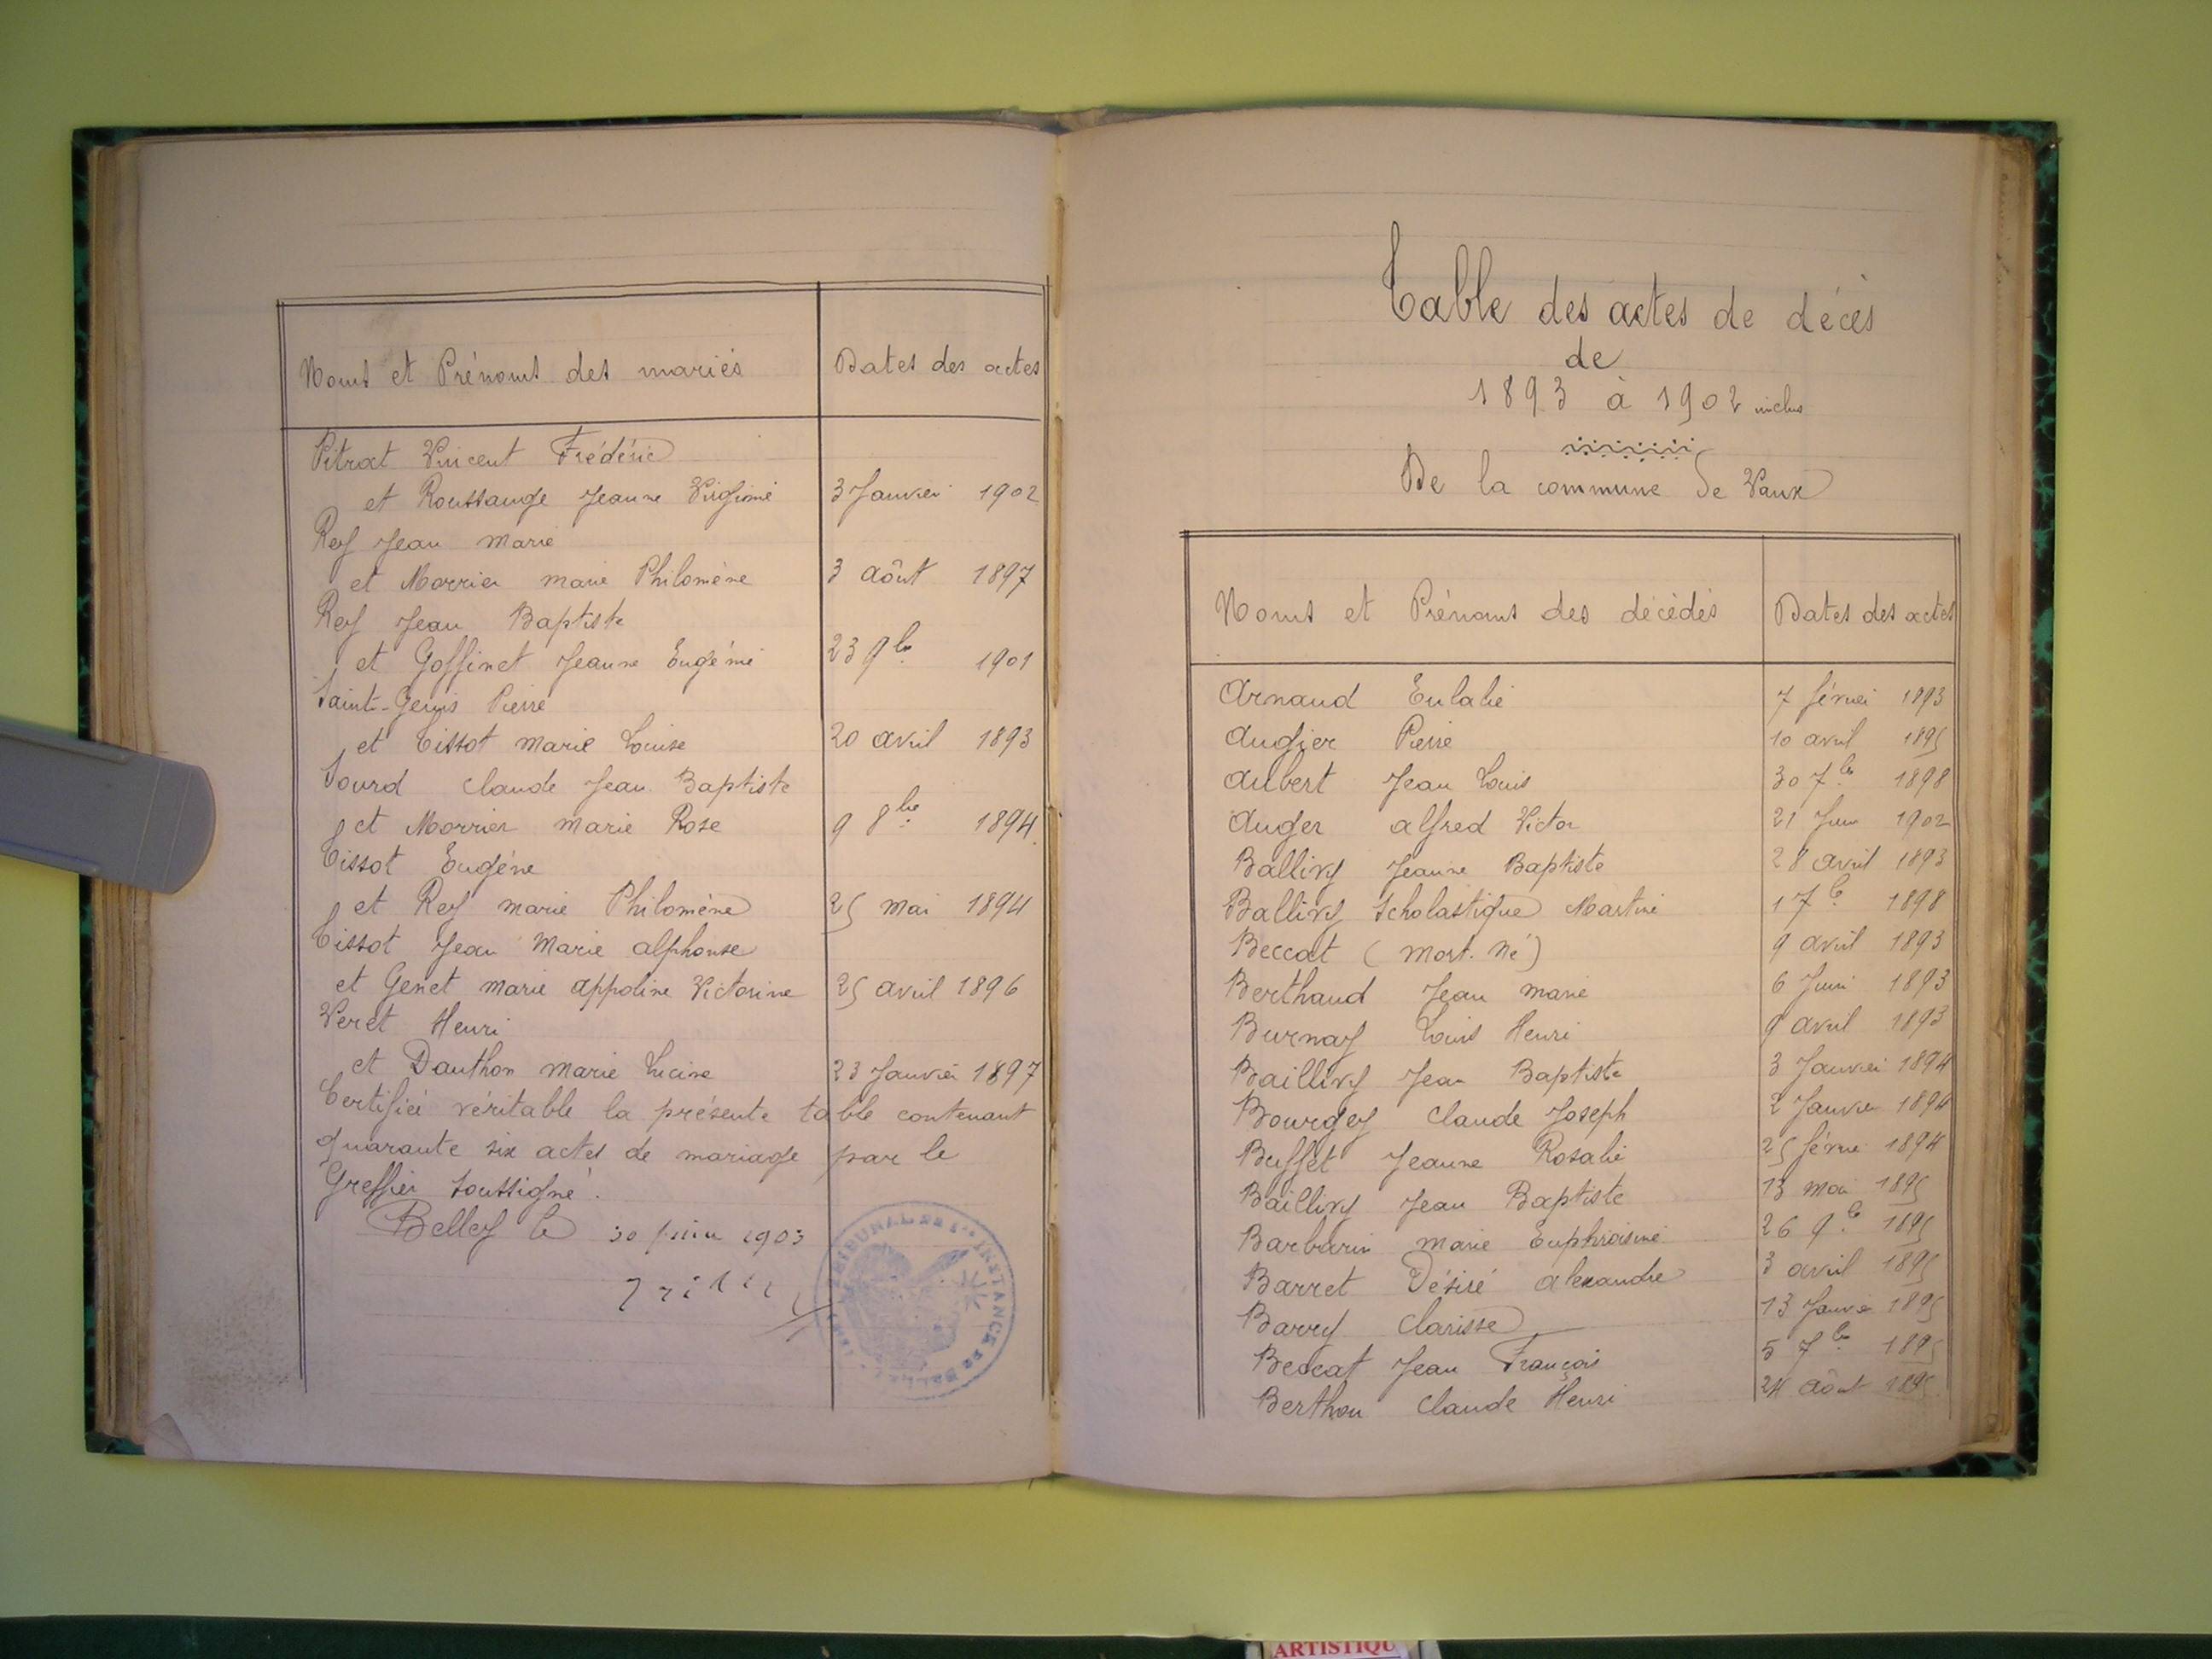 Noms et Prénoms des mariés
Dates des actes
Pitrat Vincent Frédéric
et Roussange Jeanne Virginie
3 Janvier 1902
Rey Jean Marie
et Morrier Marie Philomène
3 Août 1897
Rey Jean Baptiste
et Goffinet Jeanne Eugénie
23 9bre 1901
Saint-Genis Pierre
et Tissot Marie Louise
20 avril 1893
Sourd Claude Jean Baptiste
et Morrier Marie Rose
9 8bre 1894
Tissot Eugène
et Rey Marie Philomène
25 mai 1894
Tissot Jean Marie alphonse
et Genet Marie appoline Victorine
25 avril 1896
Veret Henri
et Danthon Marie Lucine
23 Janvier 1897
Certifiée véritable la présente table contenant
quarante six actes de mariage par le
Greffier soussigné.
Belley le 30 juin 1903
TRIBUNAL DE 1re INSTANCE DE BELLEY
Table des actes de décès
de
1893 à 1902 inclus
De la commune de Vaux
Noms et Prénoms des décédés
Dates des actes
Arnaud Eulalie 7 février 1893
Augier Pierre 10 avril 1895
Aubert Jean Louis 30 7bre 1898
Auger alfred Victor 21 Juin 1902
Ballivy Jeanne Baptiste 28 avril 1893
Ballivy Scholastique Martine 1 7bre 1898
Beccat (mort-né) 9 avril 1893
Berthaud Jean Marie 6 Juin 1893
Burnay Louis Henri 9 avril 1893
Baillivy Jean Baptiste 3 Janvier 1894
Bourgey Claude Joseph 2 Janvier 1894
Buffet Jeanne Rosalie 25 février 1894
Baillivy Jean Baptiste 13 mai 1895
Barbarin Marie Euphroisine 26 9bre 1895
Barret Désiré alexandre 3 avril 1895
Barry Clarisse 13 Janvier 1895
Beccat Jean François 5 7bre 1895
Berthon Claude Henri 24 Août 1895
ARTISTIQU